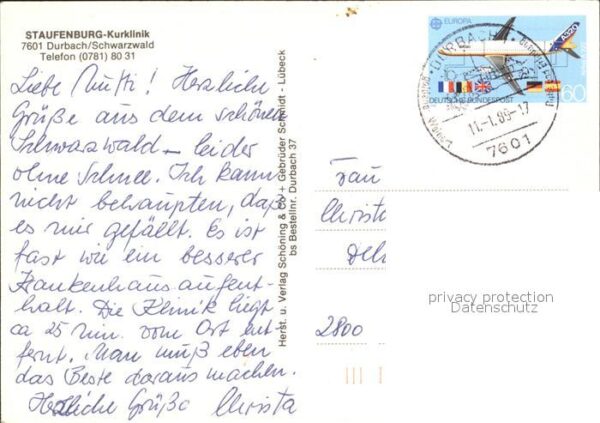 STAUFENBURG-Kurklinik
7601 Durbach/Schwarzwald
Telefon (0781) 80 31
Liebe Mutti! Herzliche
Grüße aus dem schönen
Schwarzwald – leider
ohne Schnee. Ich kann
nicht behaupten, daß
es mir gefällt. Es ist
fast wie ein besserer
Krankenhausaufent-
halt. Die Klinik liegt
ca 25 min. vom Ort ent-
fernt. Man muß eben
das Beste daraus machen.
Herzliche Grüße Christa
Herst. u. Verlag Schöning & Co + Gebrüder Schmidt - Lübeck
bs Bestellnr. Durbach 37
EUROPA
A320
DEUTSCHE BUNDESPOST
60
DURBACH
11.-1.89-17
7601
Frau
Christ
2800
privacy protection
Datenschutz